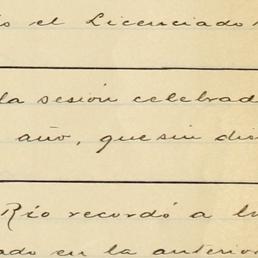 el Licenciado
la sesión celebrad
año, que sin dis
Río recordó a l
ado en la anterior